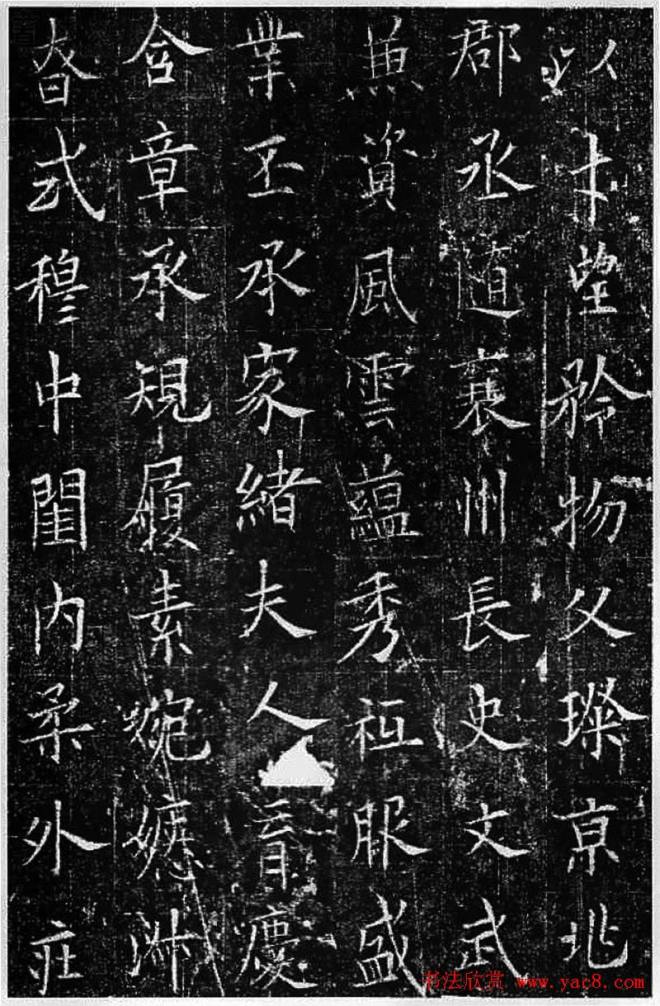 以才望矜物父璨京兆
郡丞随襄州長史文武
兼資風雲蘊秀祗服盛
業丕承家緒夫人音慶
含章承規履素婉嫕淋
昚式穆中闈内柔外莊
书法欣赏 www.yac8.com